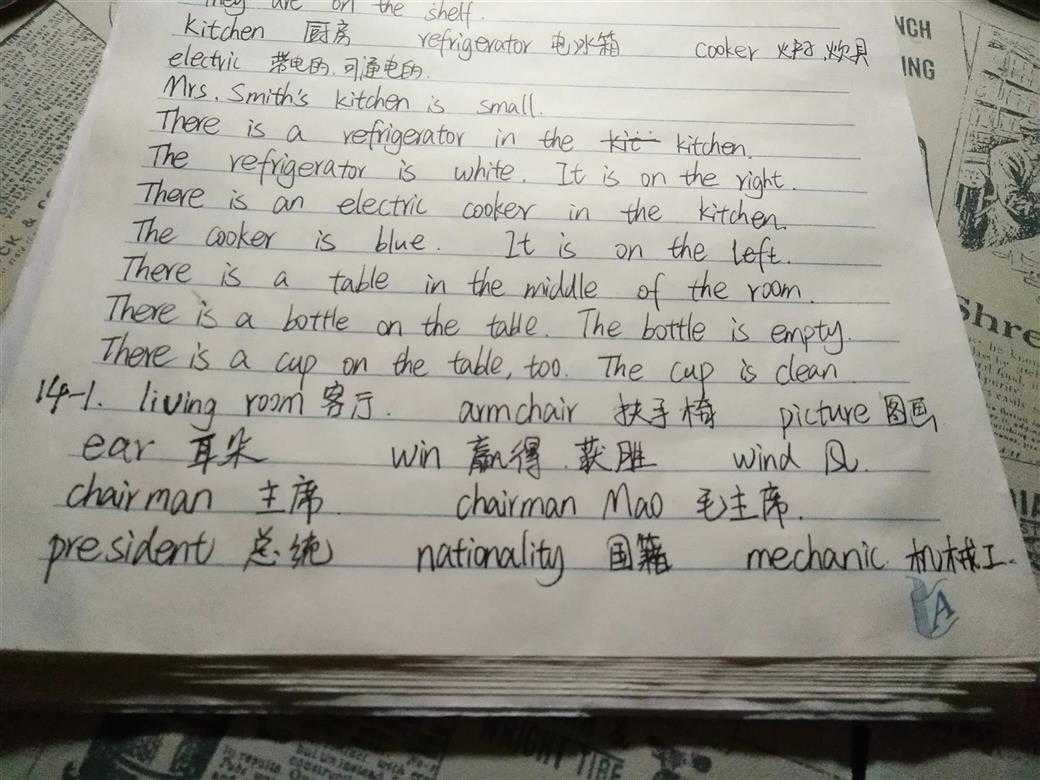 They are on the shelf.
kitchen 厨房 refrigerator 电冰箱 cooker 炉灶,炊具
electric 带电的,可通电的.
Mrs. Smith's kitchen is small.
There is a refrigerator in the kit kitchen.
The refrigerator is white. It is on the right.
There is an electric cooker in the kitchen.
The cooker is blue. It is on the left.
There is a table in the middle of the room.
There is a bottle on the table. The bottle is empty.
There is a cup on the table, too. The cup is clean.
14-1. living room 客厅. armchair 扶手椅 picture 图画
ear 耳朵 win 赢得.获胜 wind 风.
chairman 主席. chairman Mao 毛主席.
president 总统 nationality 国籍 mechanic 机械工.
A
NCH
ING
Shre
WRIGHT TIRE